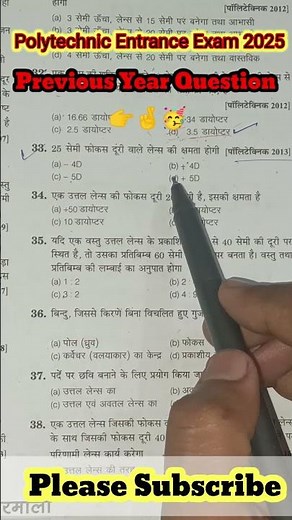 होगी [पॉलिटेक्निक 2012]
(a) 3 सेमी ऊँचा, लेन्स से 15 सेमी पर बनेगा तथा आभासी
Polytechnic Entrance Exam 2025
Previous Year Question
[पॉलिटेक्निक 2012]
(a) 16.66 डायोप्टर 34 डायोप्टर
(c) 2.5 डायोप्टर (d) 3.5 डायोप्टर
33. 25 सेमी फोकस दूरी वाले लेन्स की क्षमता होगी [पॉलिटेक्निक 2013]
(a) - 4D (b) + 4D
(c) - 5D + 5D
34. एक उत्तल लेन्स की फोकस दूरी है, इसकी क्षमता है
(a) +50 डायोप्टर (b)
(c) 10 डायोप्टर (d)
35. यदि एक वस्तु उत्तल लेन्स के से 40 सेमी की दूरी पर
स्थित है, तो उसका प्रतिबिम्ब 60 सेमी पर बनता है। वस्तु तथा
प्रतिबिम्ब की लम्बाई का अनुपात होगा
(a) 1 : 2 (b) 2
(c) 3 : 2 (d) 4 : 9
36. बिन्दु, जिससे किरणें बिना विचलित हुए
(a) पोल (ध्रुव) (b) फोकस
(c) कर्वेचर (वलयाकार) का केन्द्र (d) प्रकाशीय
37. पर्दे पर छवि बनाने के लिए प्रयोग किया
(a) उत्तल लेन्स का (b)
(c) उत्तल एवं अवतल लेन्स का (d)
38. एक उत्तल लेन्स जिसकी फोकस
के साथ जिसकी फोकस दूरी 40
परिणामी लेन्स कार्य करेगा
Please Subscribe